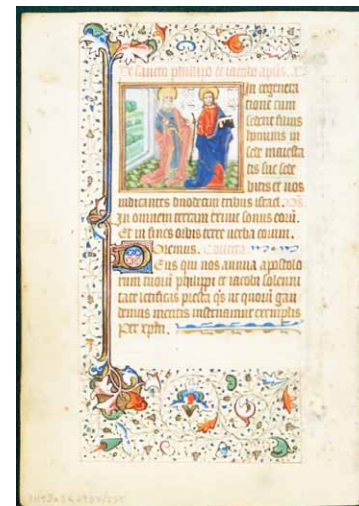 De sancto philippo et iacobo aplis. A
In regenera
tione cum
sederit filius
hominis in
sede maiesta
tis sue sede
bitis et vos
iudicantes duodecim tribus israel.
In omnem terram exivit sonus eorum.
Et in fines orbis terre verba eorum.
Oremus. Collecta
Deus qui nos annua apostolo
rum tuorum philippi et iacobi solenni
tate letificas presta qs ut quorum gau
demus meritis instruamur exemplis
Per xpm.